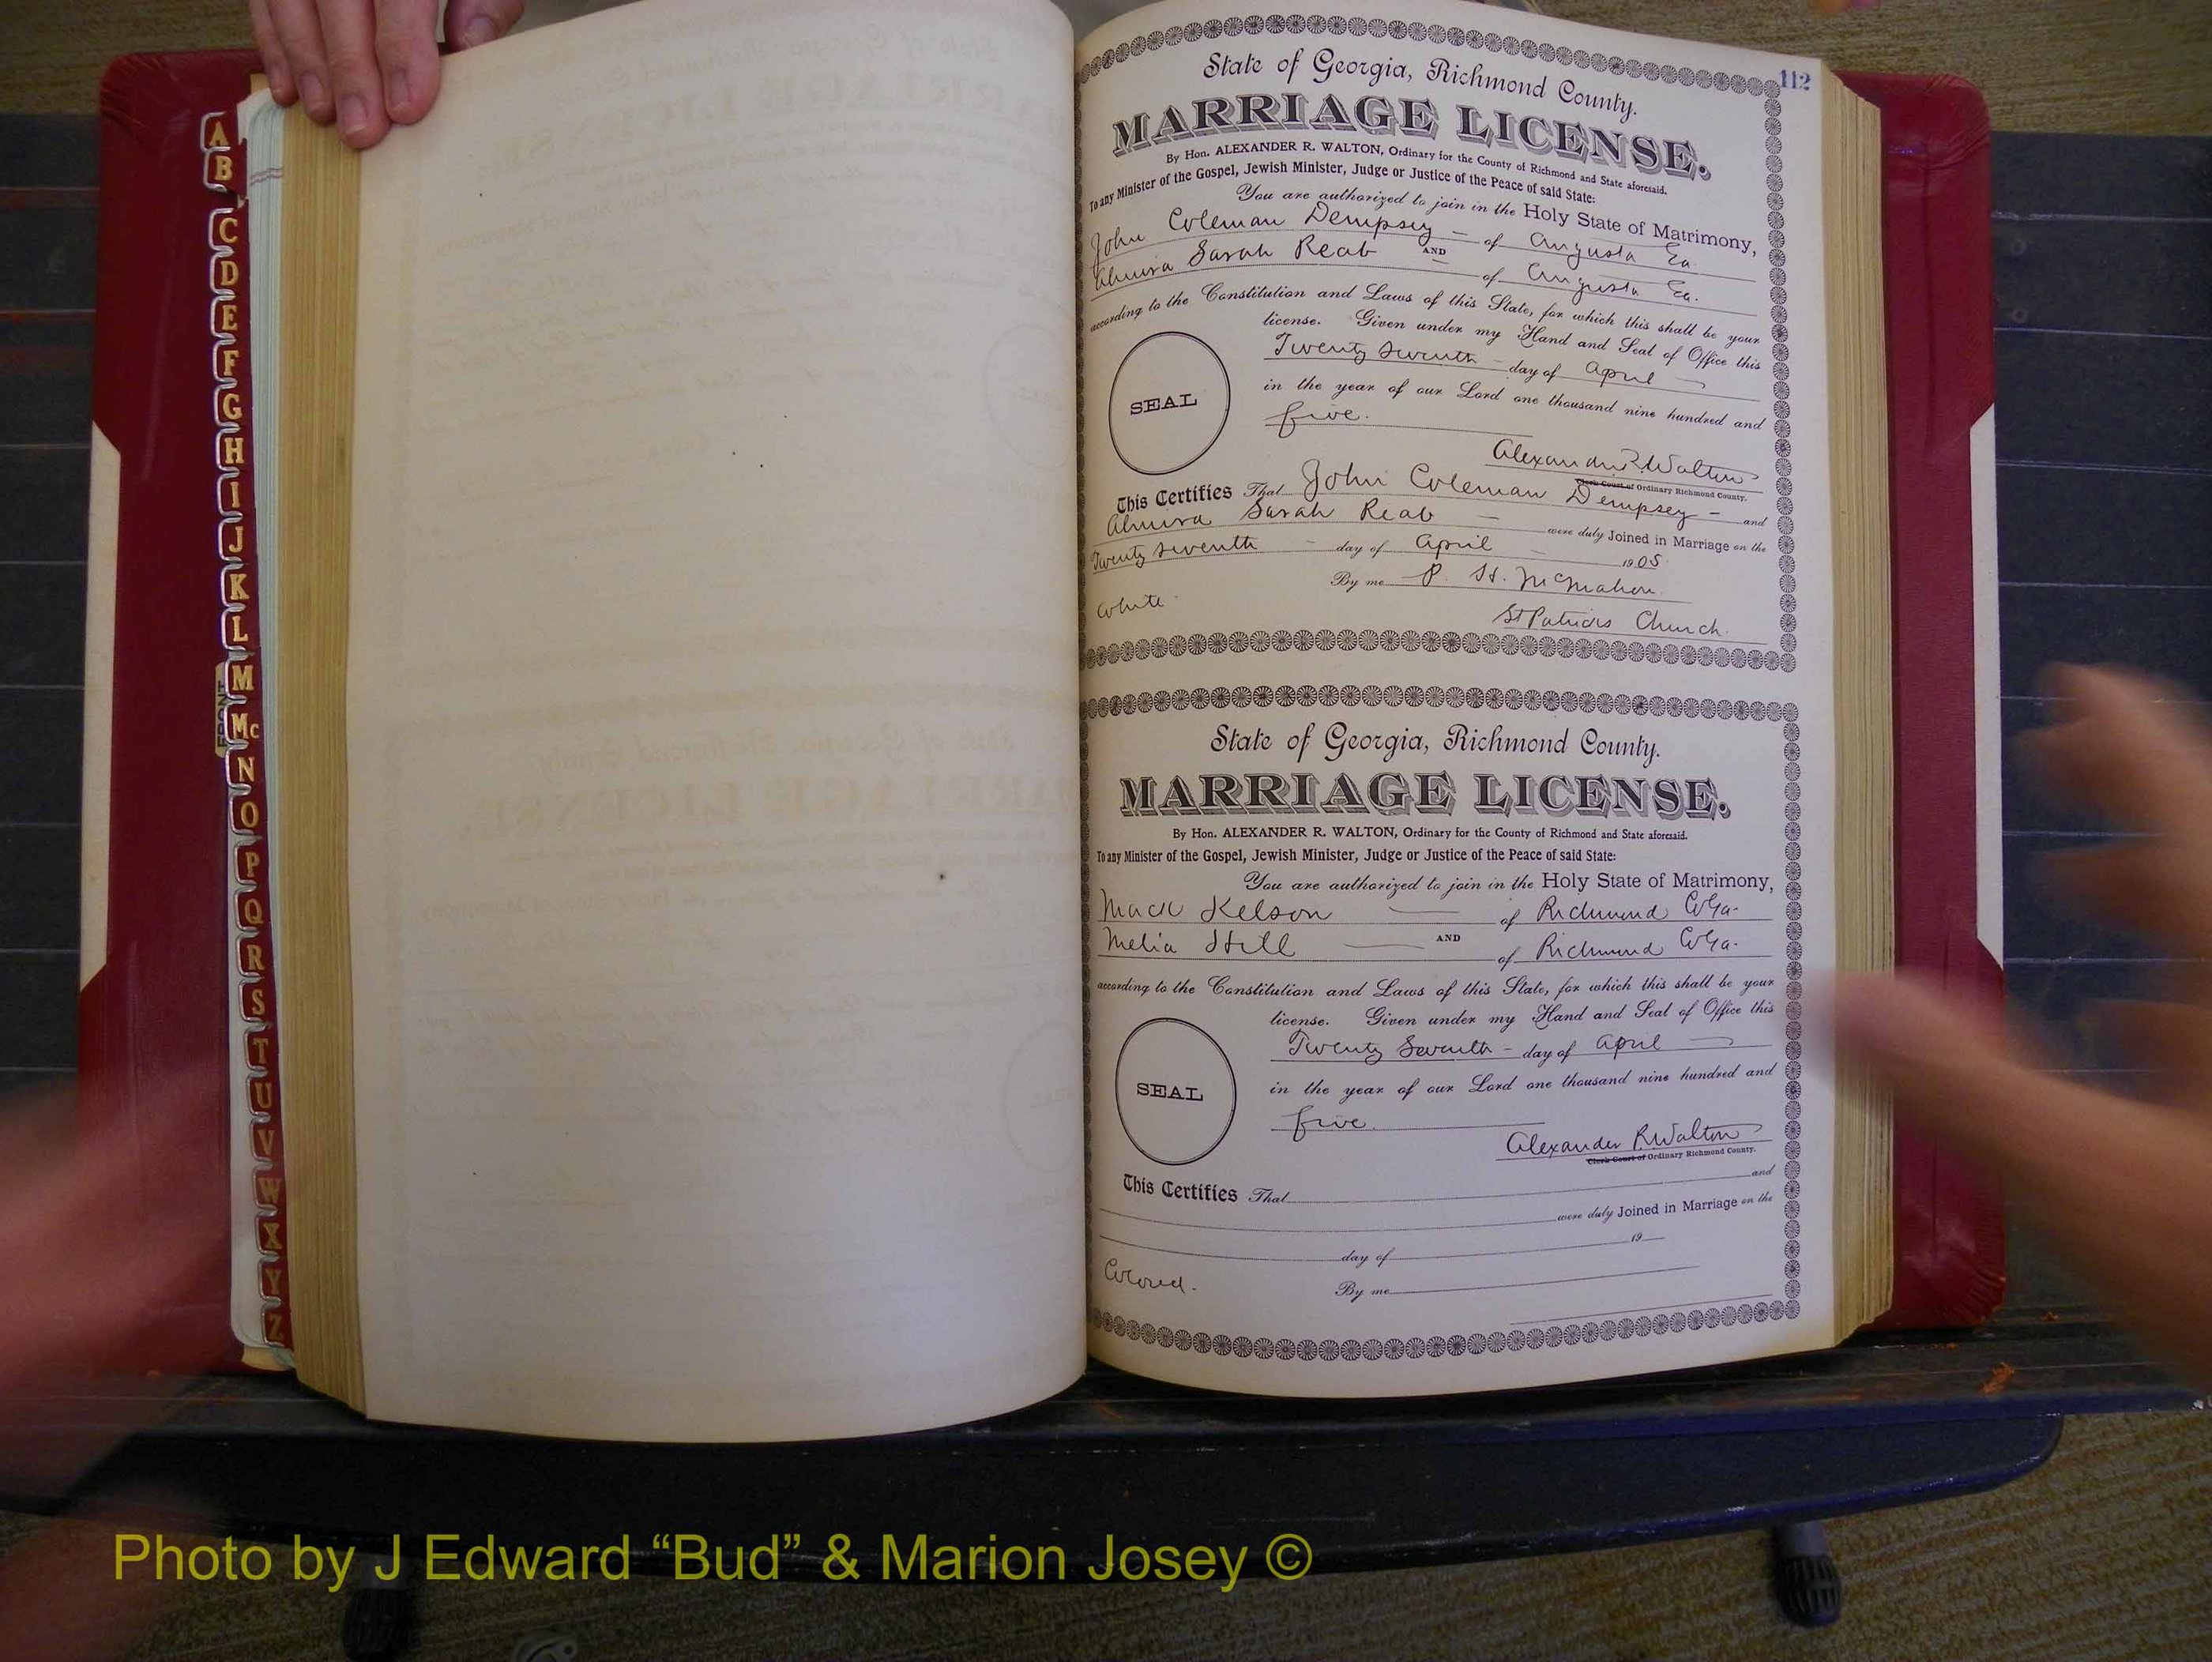 A
B
C
D
E
F
G
H
I
J
K
L
M
Mc
N
O
P
Q
R
S
T
U
V
W
X
Y
Z
FRONT
112
State of Georgia, Richmond County.
MARRIAGE LICENSE.
By Hon. ALEXANDER R. WALTON, Ordinary for the County of Richmond and State aforesaid.
To any Minister of the Gospel, Jewish Minister, Judge or Justice of the Peace of said State:
You are authorized to join in the Holy State of Matrimony,
John Coleman Dempsey – of Augusta Ga.
AND
Almira Sarah Reab – of Augusta Ga.
according to the Constitution and Laws of this State, for which this shall be your
license. Given under my Hand and Seal of Office this
Twenty Seventh – day of April –
in the year of our Lord one thousand nine hundred and
SEAL
five.
Alexander R Walton
Clerk Court of Ordinary Richmond County.
This Certifies That John Coleman Dempsey – and
Almira Sarah Reab – were duly Joined in Marriage on the
Twenty seventh – day of April – 1905.
By me P. H. McMahon.
White.
St Patricks Church.
State of Georgia, Richmond County.
MARRIAGE LICENSE.
By Hon. ALEXANDER R. WALTON, Ordinary for the County of Richmond and State aforesaid.
To any Minister of the Gospel, Jewish Minister, Judge or Justice of the Peace of said State:
You are authorized to join in the Holy State of Matrimony,
Mack Kelson — of Richmond Co Ga.
AND
Melia Hill — of Richmond Co Ga.
according to the Constitution and Laws of this State, for which this shall be your
license. Given under my Hand and Seal of Office this
Twenty Seventh – day of April –
in the year of our Lord one thousand nine hundred and
SEAL
five.
Alexander R Walton
Clerk Court of Ordinary Richmond County.
This Certifies That and
were duly Joined in Marriage on the
day of 19
Colored.
By me
Photo by J Edward “Bud” & Marion Josey ©